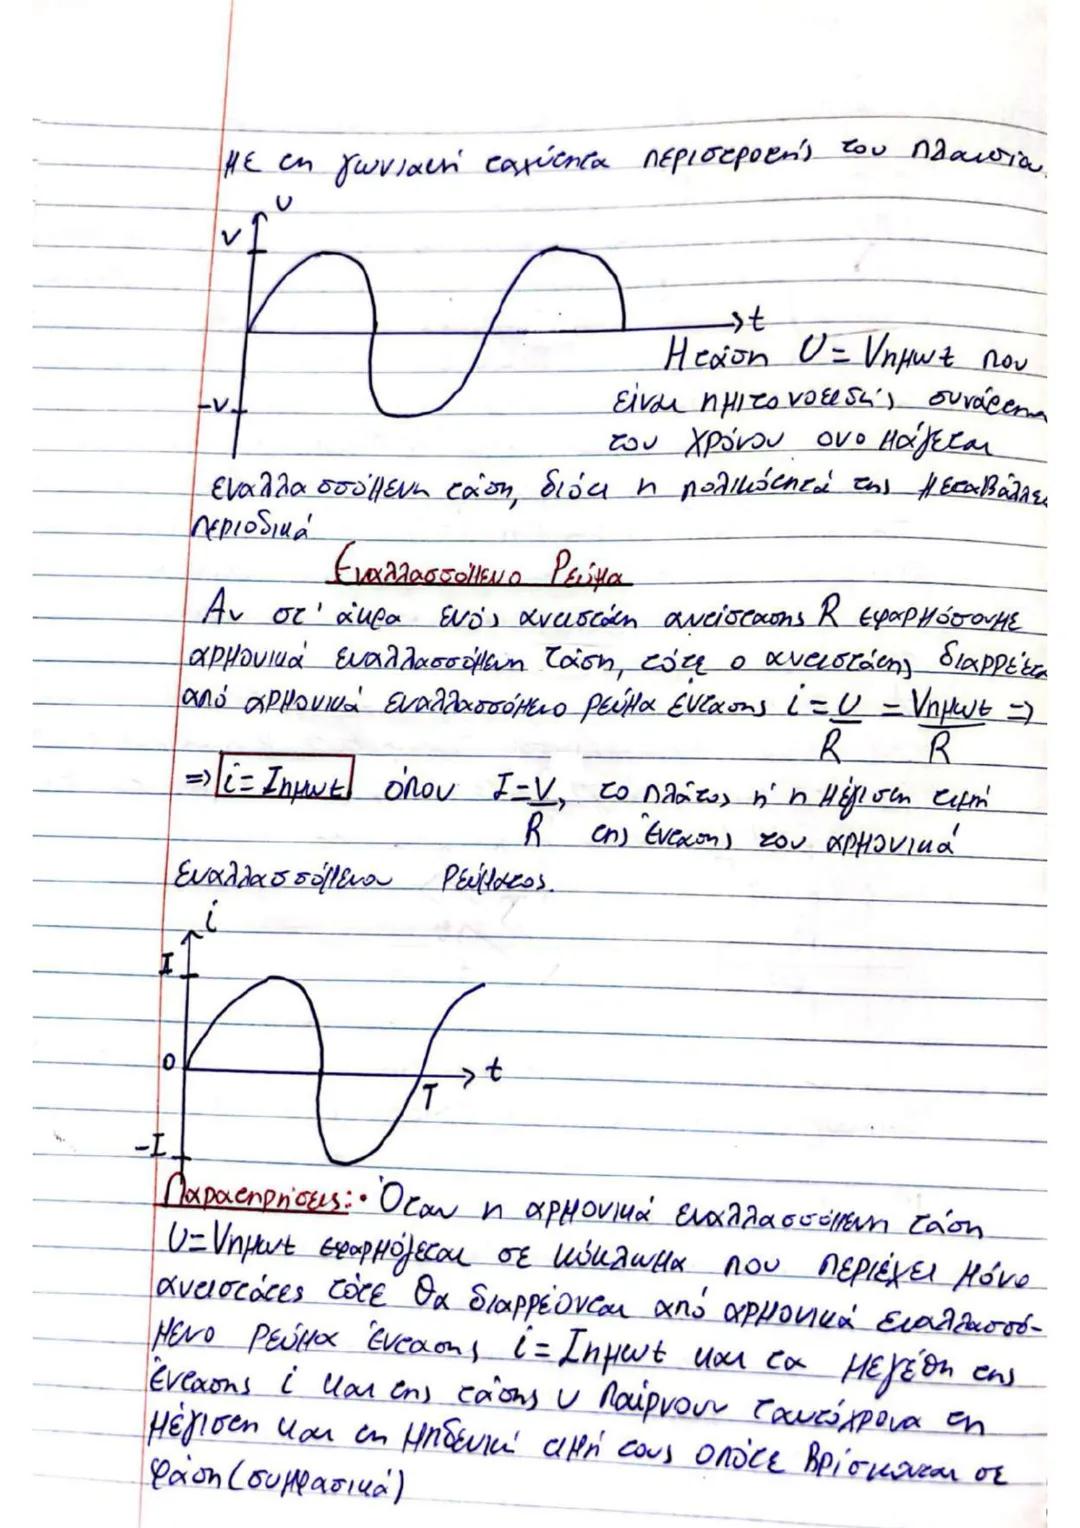 με τη γωνιακή ταχύτητα περιστροφής του πλαισίου.
υ
V
t
Η τάση υ = Vημωt που
-V
είναι ημιτονοειδής συνάρτηση
του χρόνου ονομάζεται
εναλλασσόμενη τάση, διότι η πολικότητά της μεταβάλλει
περιοδικά
Εναλλασσόμενο Ρεύμα
Αν στ' άκρα ενός αντιστάτη αντίστασης R εφαρμόσουμε
αρμονικά εναλλασσόμενη τάση, τότε ο αντιστάτης διαρρέεται
από αρμονικά εναλλασσόμενο ρεύμα έντασης i = υ/R = Vημωt/R =>
=> i = Iημωt όπου I = V/R, το πλάτος ή η μέγιστη τιμή
της έντασης του αρμονικά
εναλλασσόμενου ρεύματος.
i
I
0
t
T
-I
Παρατηρήσεις: • Όταν η αρμονικά εναλλασσόμενη τάση
υ = Vημωt εφαρμόζεται σε κύκλωμα που περιέχει μόνο
αντιστάτες τότε θα διαρρέονται από αρμονικά εναλλασσό-
μενο ρεύμα έντασης i = Iημωt και τα μεγέθη της
έντασης i και της τάσης υ παίρνουν ταυτόχρονα τη
μέγιστη και τη μηδενική τιμή τους οπότε βρίσκονται σε
φάση (συμφασικά)